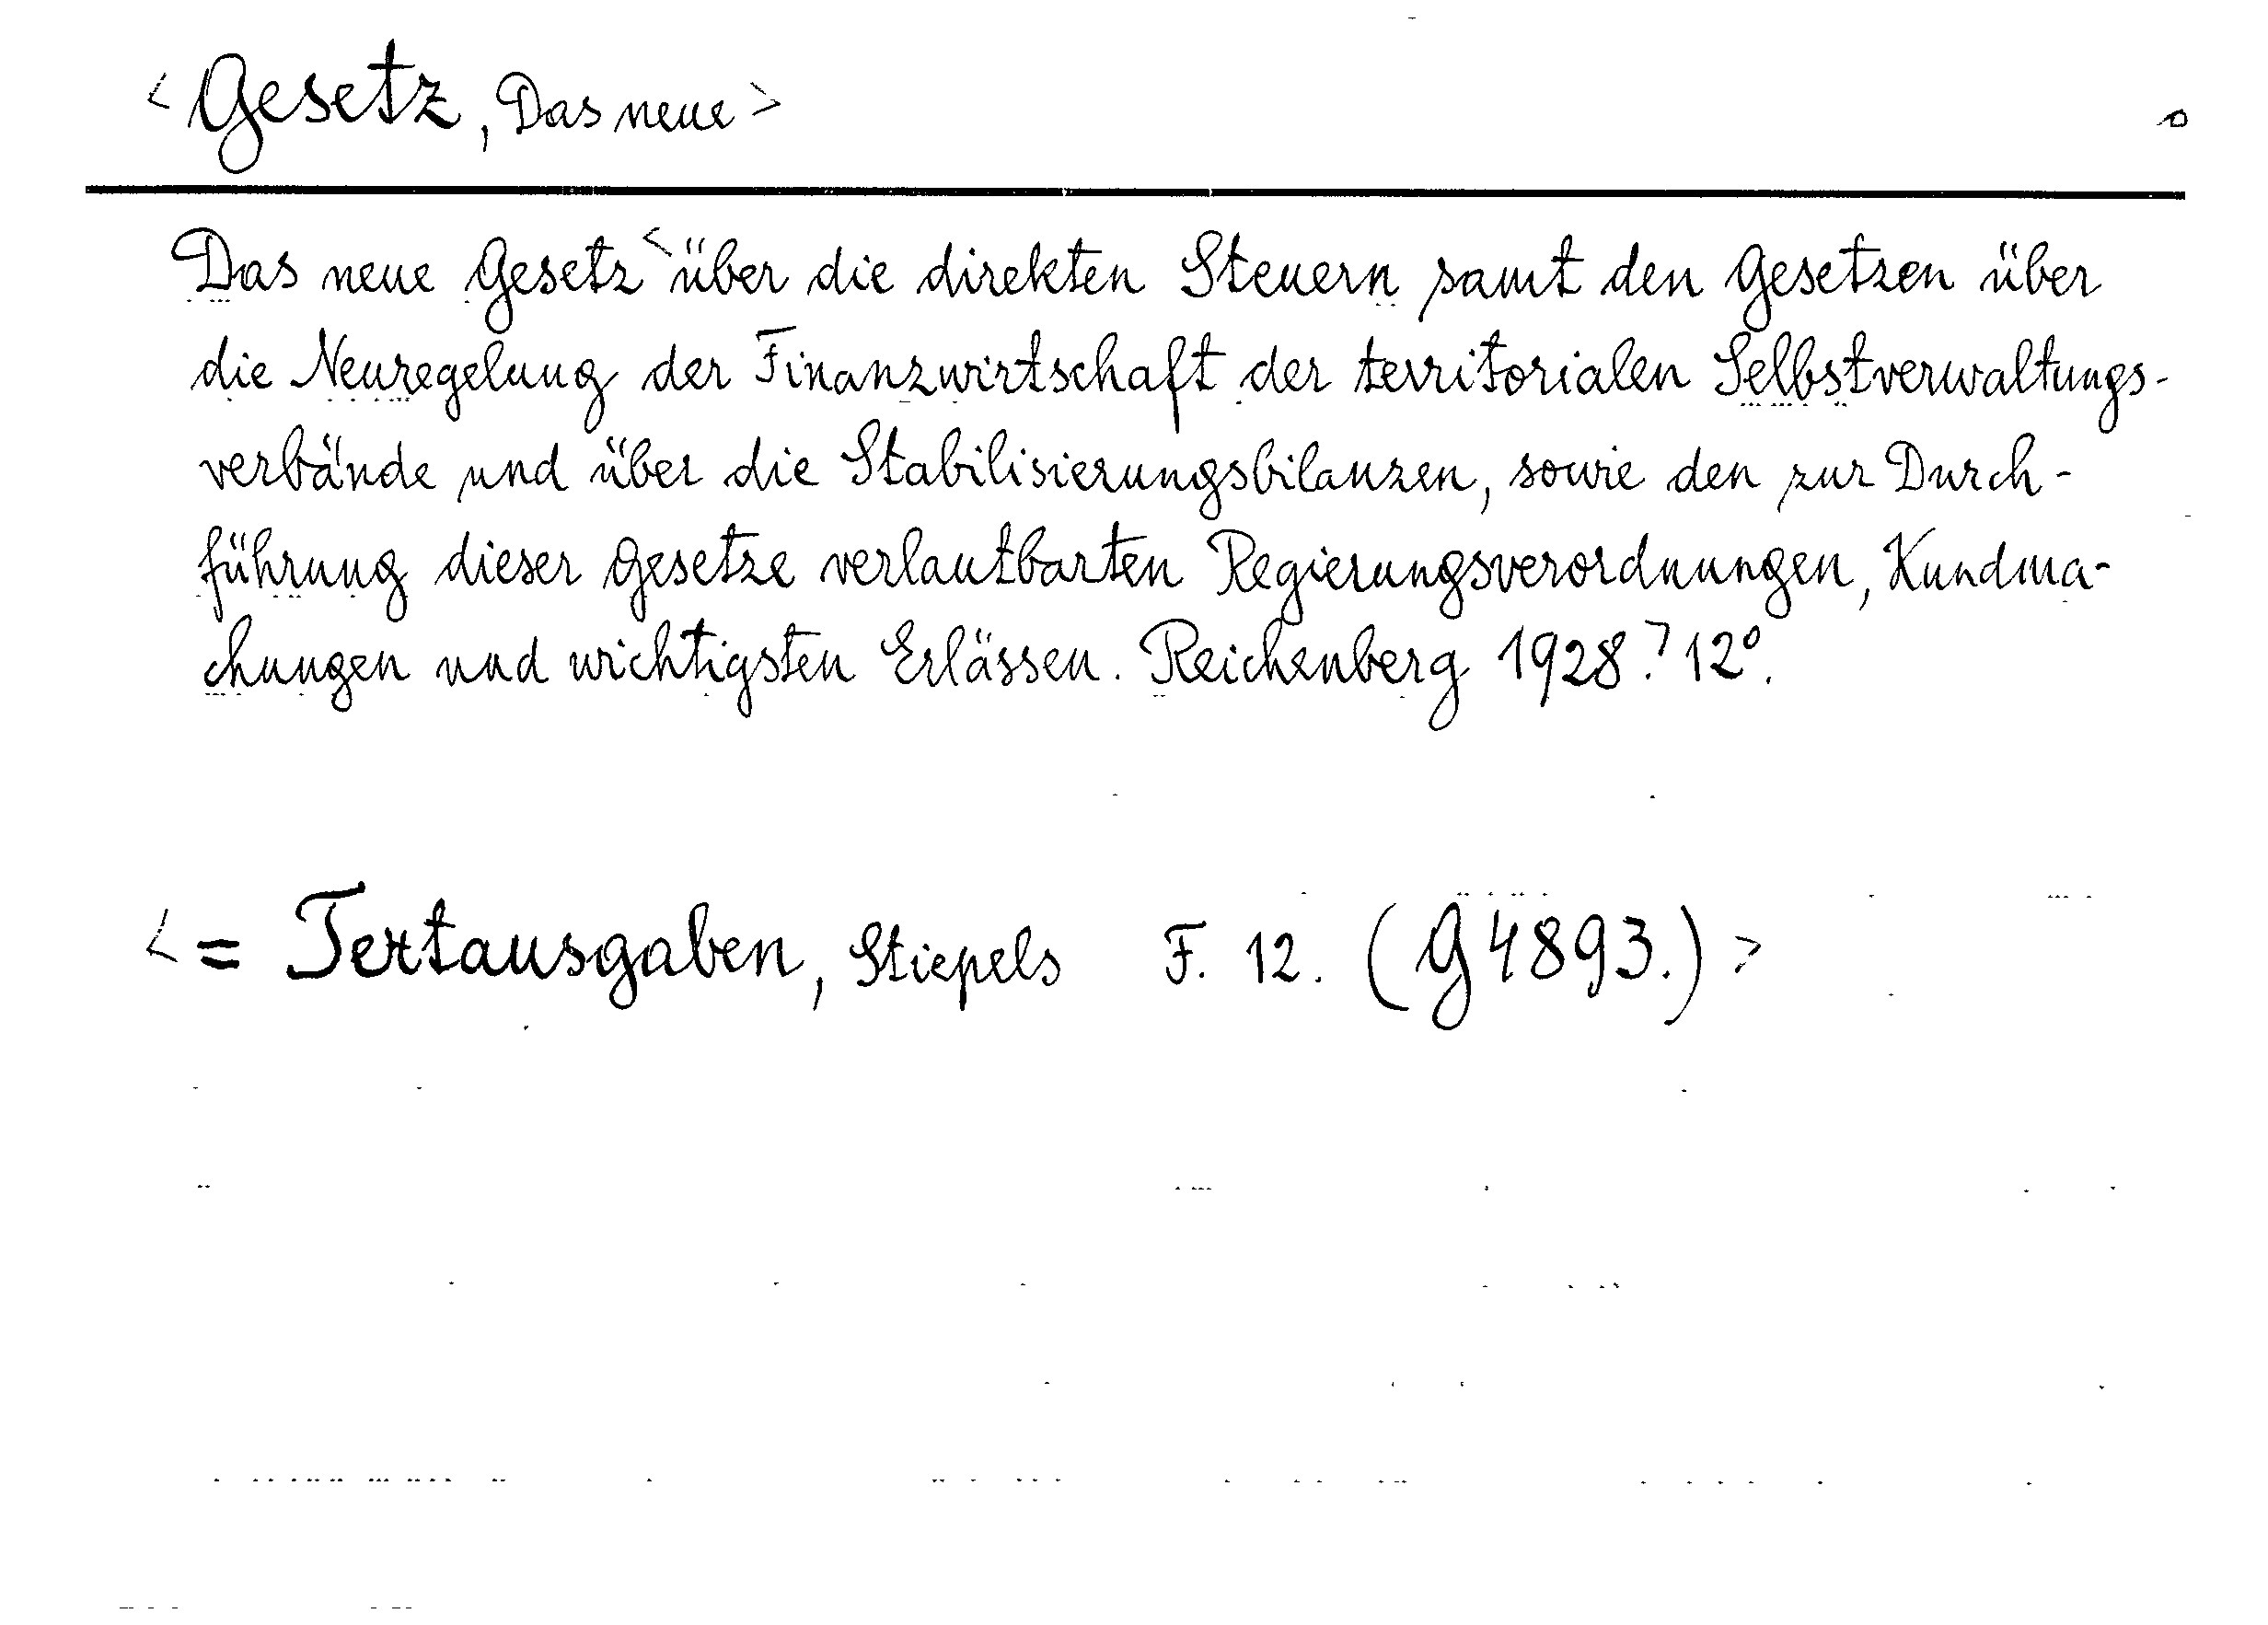 < Gesetz, Das neue >
Das neue Gesetz < über die direkten Steuern samt den Gesetzen über
die Neuregelung der Finanzwirtschaft der territorialen Selbstverwaltungs-
verbände und über die Stabilisierungsbilanzen, sowie den zur Durch-
führung dieser Gesetze verlautbarten Regierungsverordnungen, Kundma-
chungen und wichtigsten Erlässen. Reichenberg 1928.> 12°.
< = Textausgaben, Stiepels F. 12. (G 4893.) >